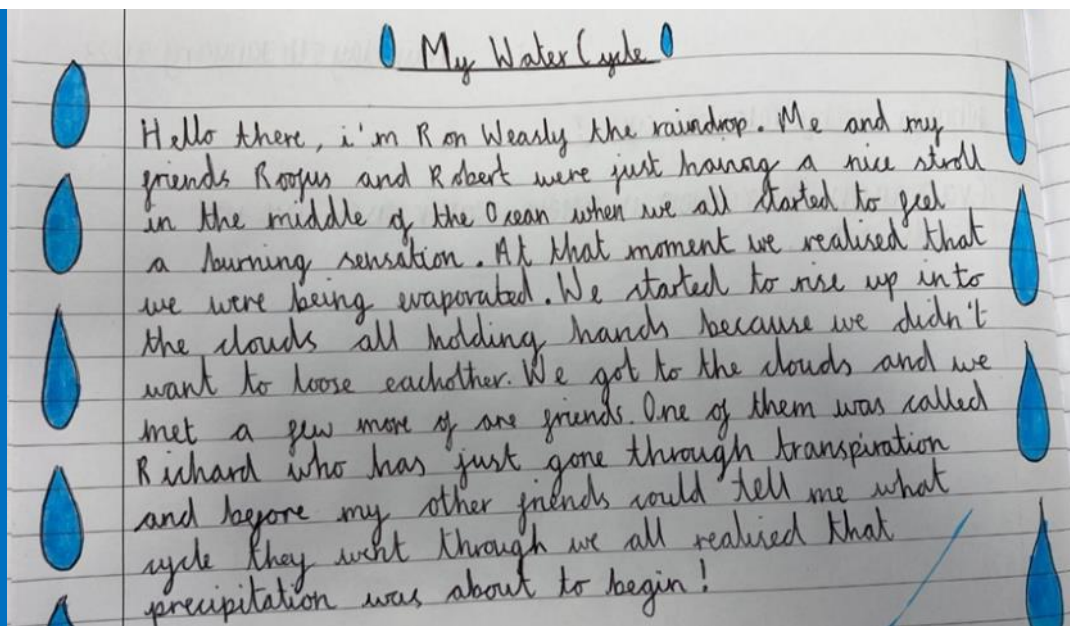 My Water Cycle
Hello there, i'm Ron Weasly the raindrop. Me and my
friends Roofus and Robert were just having a nice stroll
in the middle of the Ocean when we all started to feel
a burning sensation. At that moment we realised that
we were being evaporated. We started to rise up into
the clouds all holding hands because we didn't
want to loose eachother. We got to the clouds and we
met a few more of are friends. One of them was called
Richard who has just gone through transpiration
and before my other friends could tell me what
cycle they went through we all realised that
precipitation was about to begin!